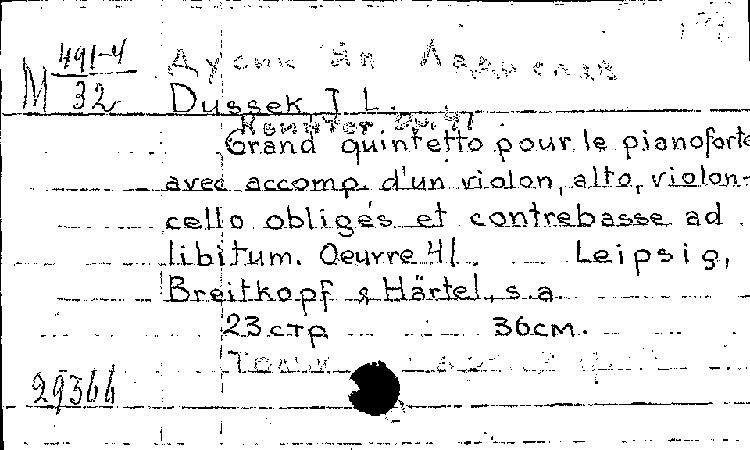 М 491-4
32
Дусик Ян Ладислав
Dussek J. L.
Квинтет. Op. 41
Grand quintetto pour le pianoforte
avec accomp. d'un violon, alto, violon-
cello obligés et contrebasse ad
libitum. Oeuvre 41. Leipsig,
Breitkopf & Härtel, s.a
23 стр 36см.
29366